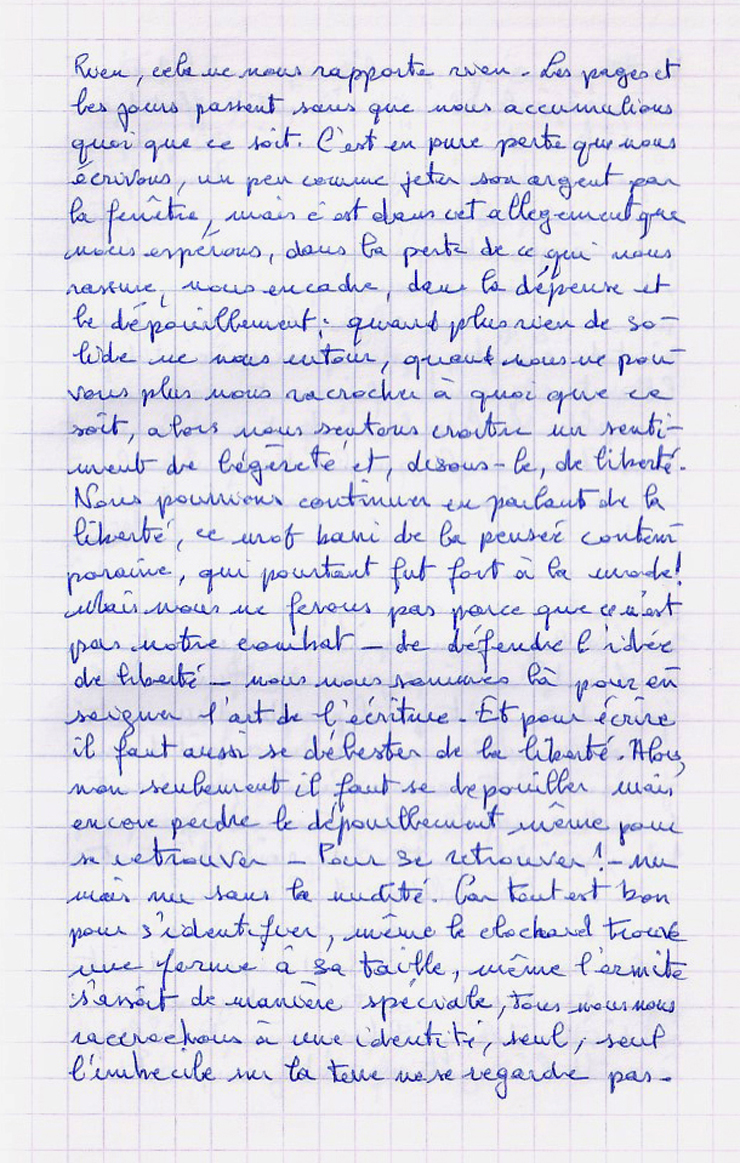 Rien, cela ne nous rapporte rien. Les pages et
les jours passent sans que nous accumulions
quoi que ce soit. C'est en pure perte que nous
écrivons, un peu comme jeter son argent par
la fenêtre, mais c'est dans cet allegement que
nous espérons, dans la perte de ce qui nous
rassure, nous encadre, dans la dépense et
le dépouillement ; quand plus rien de so-
lide ne nous entour, quand nous ne pou-
vons plus nous racrocher à quoi que ce
soit, alors nous sentons croître un senti-
ment de légèreté et, disons-le, de liberté.
Nous pourrions continuer en parlant de la
liberté, ce mot bani de la pensée contem-
poraine, qui pourtant fut fort à la mode !
Mais nous ne ferons pas parce que ce n'est
pas notre combat - de défendre l'idée
de liberté - nous nous sommes là pour en
seigner l'art de l'écriture. Et pour écrire
il faut aussi se délester de la liberté. Alors,
non seulement il faut se dépouiller mais
encore perdre le dépouillement même pour
se retrouver - Pour se retrouver ! - nu
mais nu sans la nudité. Car tout est bon
pour s'identifier, même le clochard trouve
une forme à sa taille, même l'ermite
s'assoit de manière spéciale, tous nous nous
raccrochons à une identité, seul, seul
l'imbecile sur la terre ne se regarde pas.